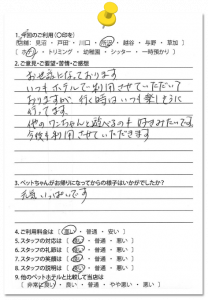 1.今回のご利用(○印を)
[店舗:見沼・戸田・川口・所沢・越谷・与野・草加]
[ホテル・トリミング・幼稚園・シッター・一時預かり]
2.ご意見・ご要望・苦情・ご感想
お世話になっております
いつもホテルで利用させていただいて
おりますが、行く時はいつも楽しそうに
行ってます。
他のワンちゃんと遊べるのも好きみたいです。
今後も利用させていただきます
3.ペットちゃんがお帰りになってからの様子はいかがでしたか?
元気いっぱいです
4.ご利用料金は(高い・普通・安い)
5.スタッフの対応は(良い・普通・悪い)
6.スタッフの礼節は(良い・普通・悪い)
7.スタッフの笑顔は(良い・普通・悪い)
8.スタッフの説明は(良い・普通・悪い)
9.他のペットホテルと比較して当店は
(非常に良い・良い・普通・やや悪い・悪い)